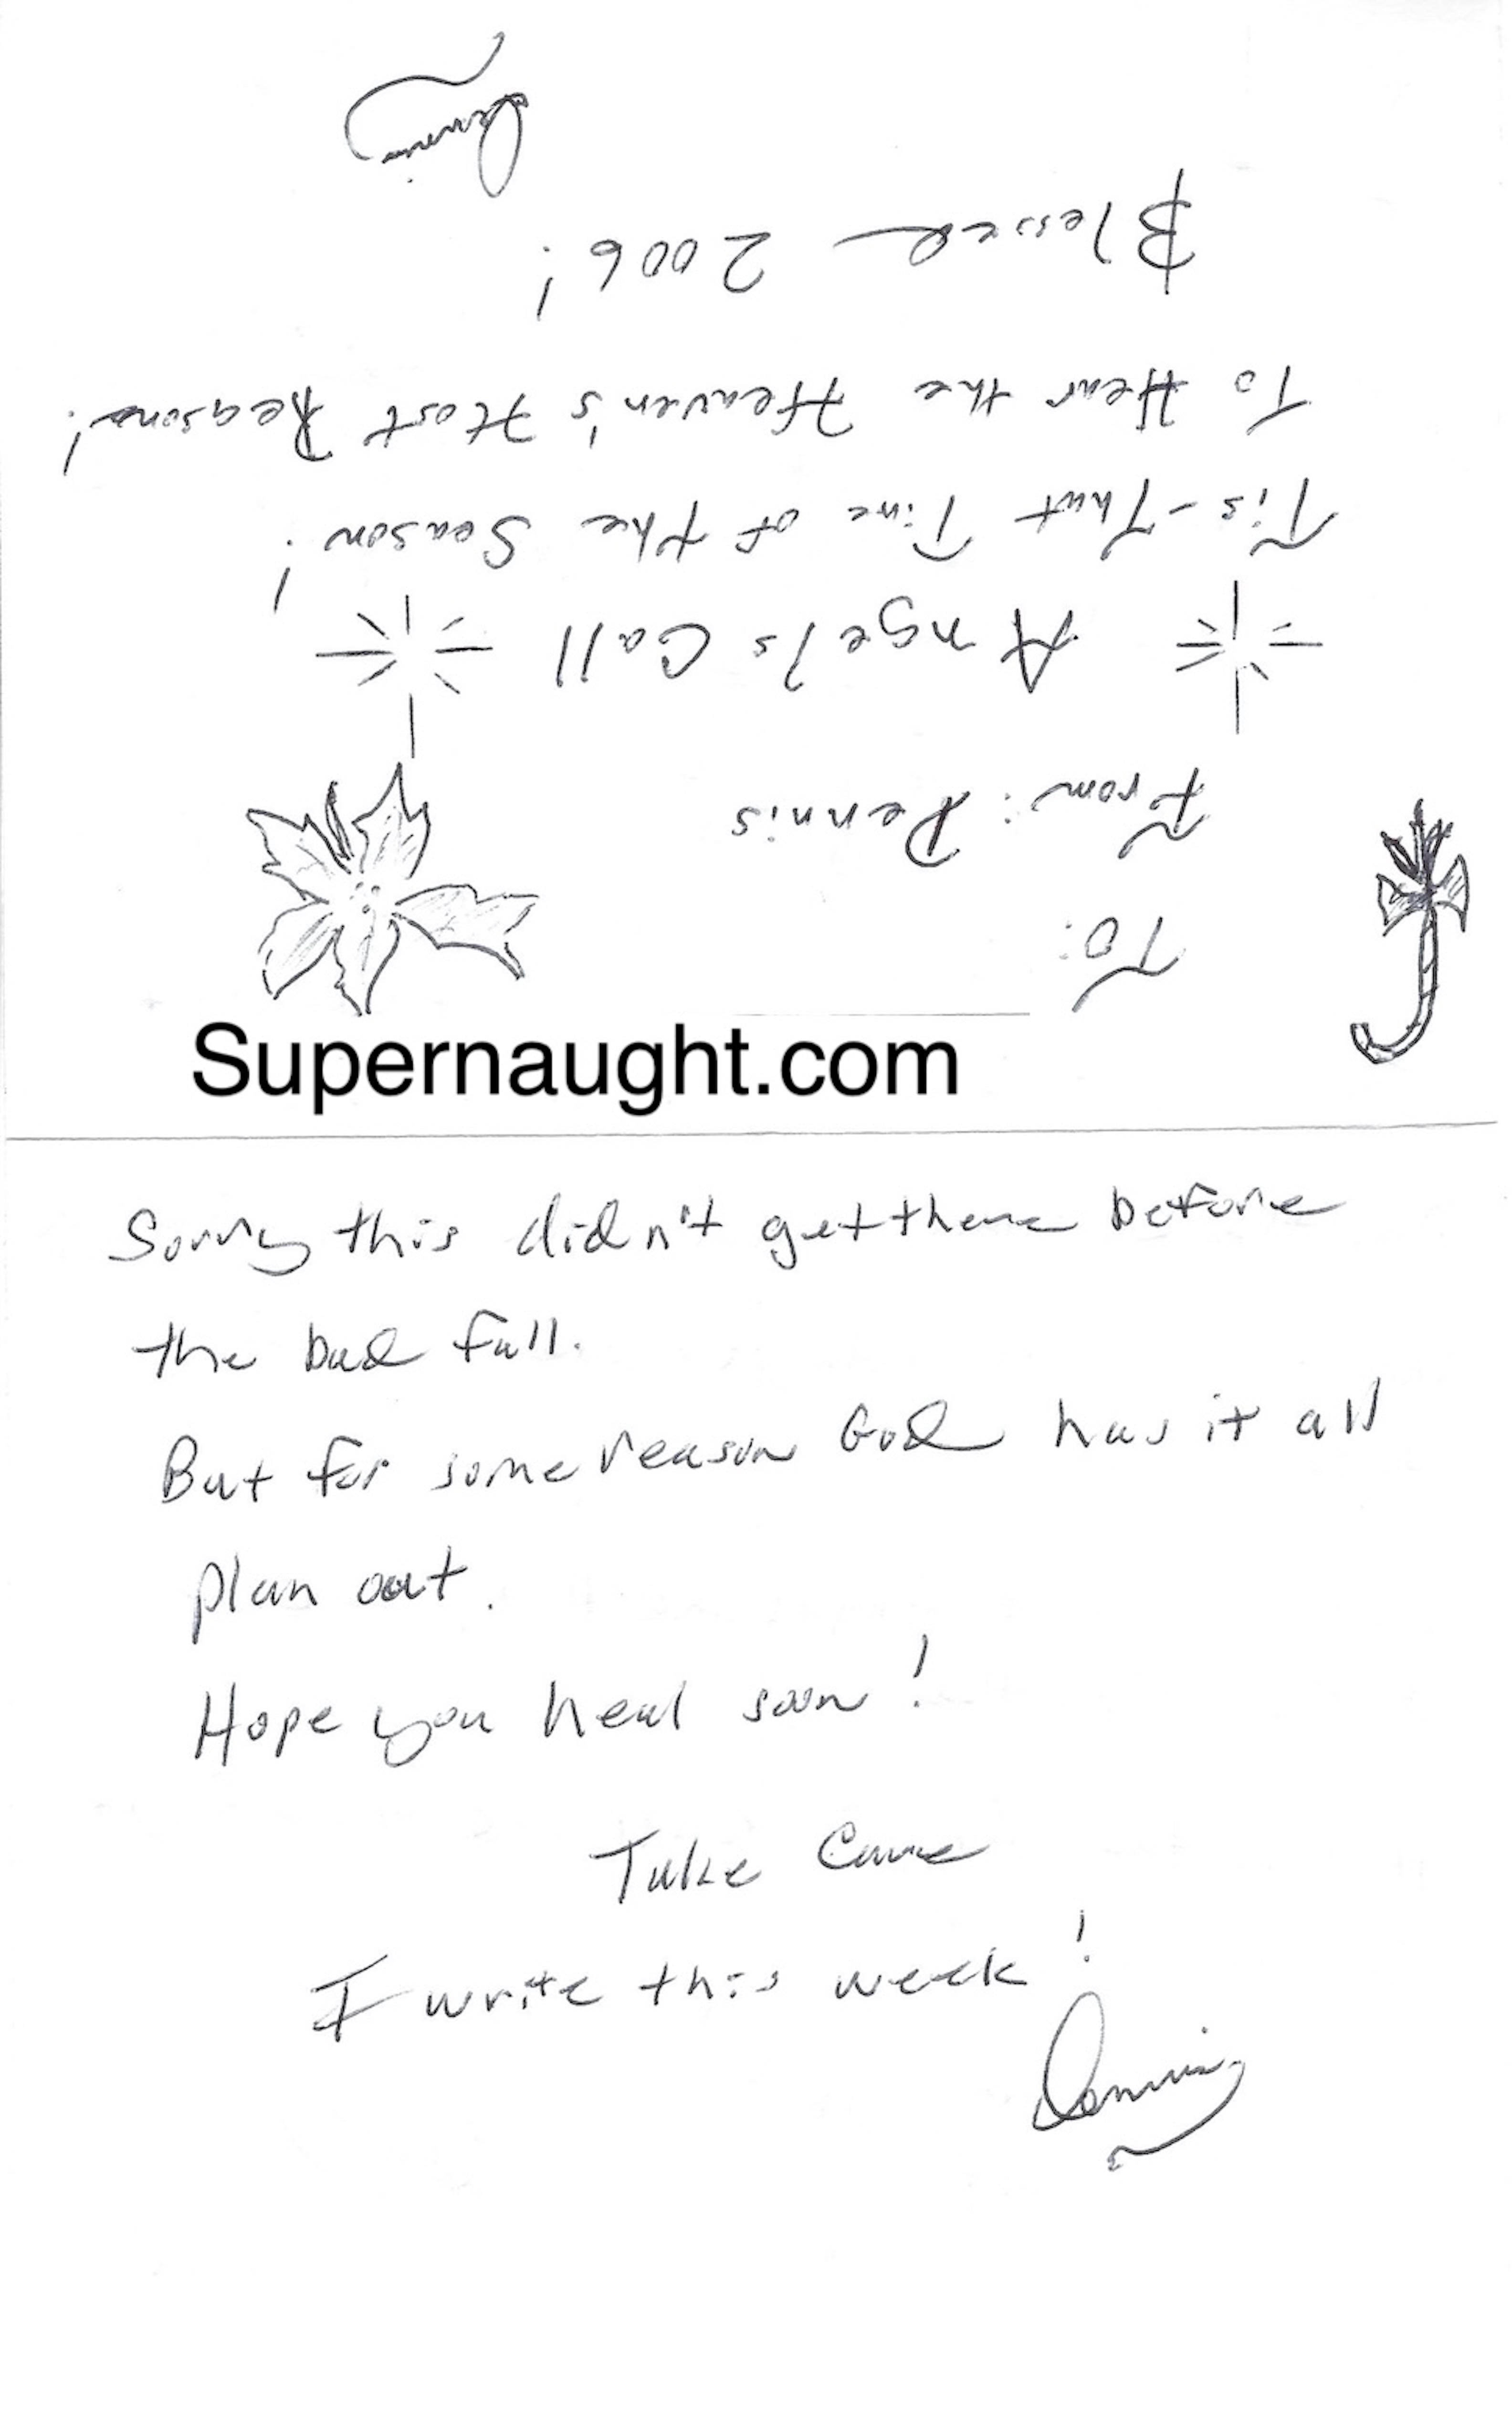 To:
From: Dennis
Angels Call
Tis-That Time of the Season!
To Hear the Heaven's Host Reasons!
Blessed 2006!
Dennis
Supernaught.com
Sorry this didn't get there before
the bad fall.
But for some reason God has it all
plan out.
Hope you heal soon!
Take Care
I write this week!
Dennis